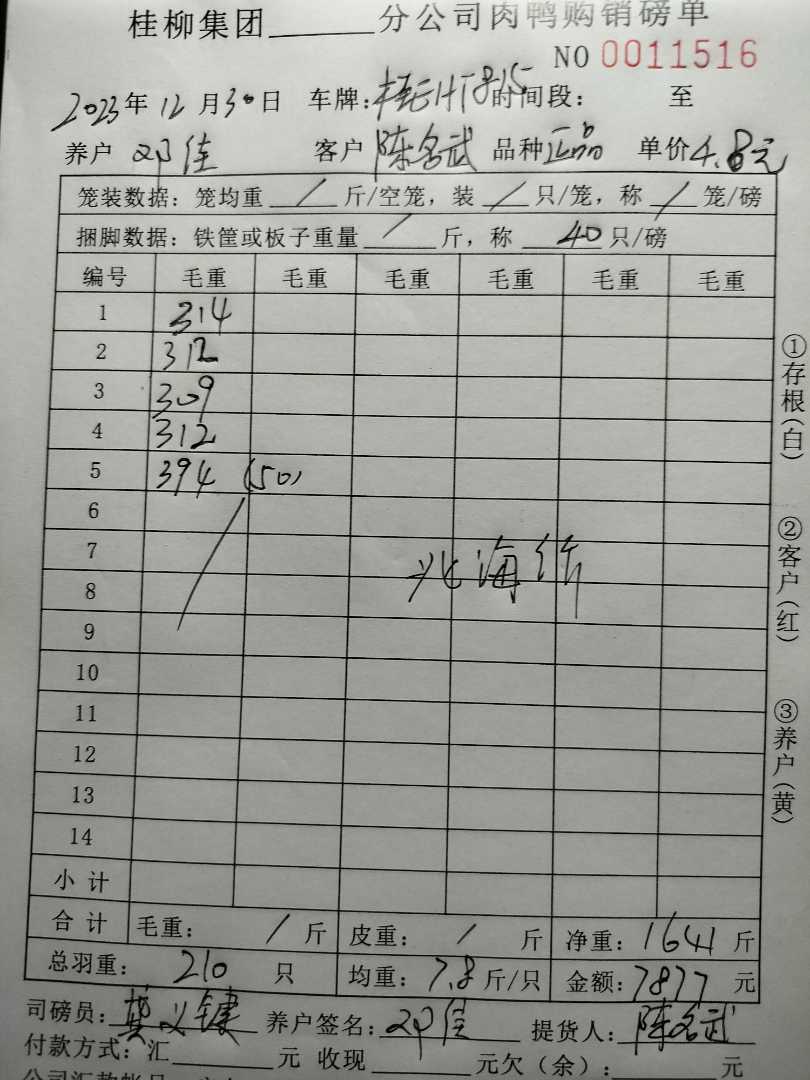 桂柳集团______分公司肉鸭购销磅单
NO 0011516
2023年12月30日 车牌: 时间段: 至
养户 邓佳 客户 陈名武 品种 正品 单价 4.8元
笼装数据: 笼均重 / 斤/空笼, 装 / 只/笼, 称 / 笼/磅
捆脚数据: 铁筐或板子重量 / 斤, 称 40 只/磅
编号 毛重 毛重 毛重 毛重 毛重 毛重
1 314
2 312
3 309
4 312
5 394 (50)
6
7
北海
8
9
10
11
12
13
14
小计
合计 毛重: / 斤 皮重: / 斤 净重: 1641 斤
总羽重: 210 只 均重: 7.8 斤/只 金额: 7877 元
司磅员: 养户签名: 邓佳 提货人: 陈名武
付款方式: 汇______元 收现______元欠(余):______元
①存根(白)
②客户(红)
③养户(黄)